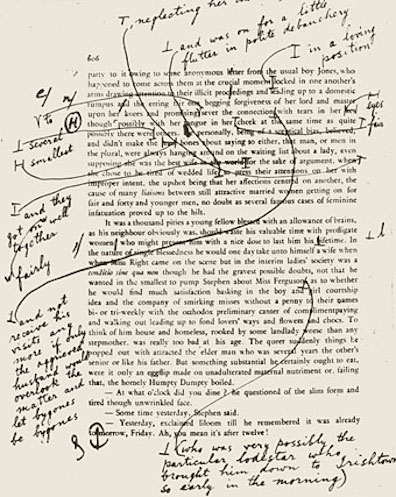 T, neglecting her
⊥ and was on for a little
flutter in polite debauchery
I in a loving
position
606
party to it owing to some anonymous letter from the usual boy Jones, who
happened to come across them at the crucial moment locked in one another's
arms drawing attention to their illicit proceedings and leading up to a domestic
rumpus and the erring fair one begging forgiveness of her lord and master
upon her knees and promising to sever the connection with tears in her eyes
though possibly with her tongue in her cheek at the same time as quite
possibly there were others. He personally, being of a sceptical bias, believed,
and didn't make the least bones about saying so either, that man, or men in
the plural, were always hanging around on the waiting list about a lady, even
supposing she was the best wife in the world for the sake of argument, when
she chose to be tired of wedded life to press their attentions on her with
improper intent, the upshot being that her affections centred on another, the
cause of many liaisons between still attractive married women getting on for
fair and forty and younger men, no doubt as several famous cases of feminine
infatuation proved up to the hilt.
It was a thousand pities a young fellow blessed with an allowance of brains,
as his neighbour obviously was, should waste his valuable time with profligate
women who might present him with a nice dose to last him his lifetime. In
the nature of single blessedness he would one day take unto himself a wife when
when Miss Right came on the scene but in the interim ladies' society was a
conditio sine qua non though he had the gravest possible doubts, not that he
wanted in the smallest to pump Stephen about Miss Ferguson as to whether
he would find much satisfaction basking in the boy and girl courtship
idea and the company of smirking misses without a penny to their names
bi- or tri-weekly with the orthodox preliminary canter of complimentpaying
and walking out leading up to fond lovers' ways and flowers and chocs. To
think of him house and homeless, rooked by some landlady worse than any
stepmother, was really too bad at his age. The queer suddenly things he
popped out with attracted the elder man who was several years the other's
senior or like his father. But something substantial he certainly ought to eat,
were it only an eggflip made on unadulterated maternal nutriment or, failing
that, the homely Humpty Dumpty boiled.
— At what o'clock did you dine? he questioned of the slim form and
tired though unwrinkled face.
— Some time yesterday, Stephen said.
— Yesterday, exclaimed Bloom till he remembered it was already
tomorrow, Friday. Ah, you mean it's after twelve!
e/
V to
H
⊥ several
H smallest
I and they
got on well
together
fairly
⊥ and not
receive his
visits any
more if only
the aggrieved
husband would
overlook the
matter and
let bygones
be bygones
H eyes
T fair
⊥ (who was very possibly the
particular lodestar who
brought him down to Irishtown
so early in the morning)